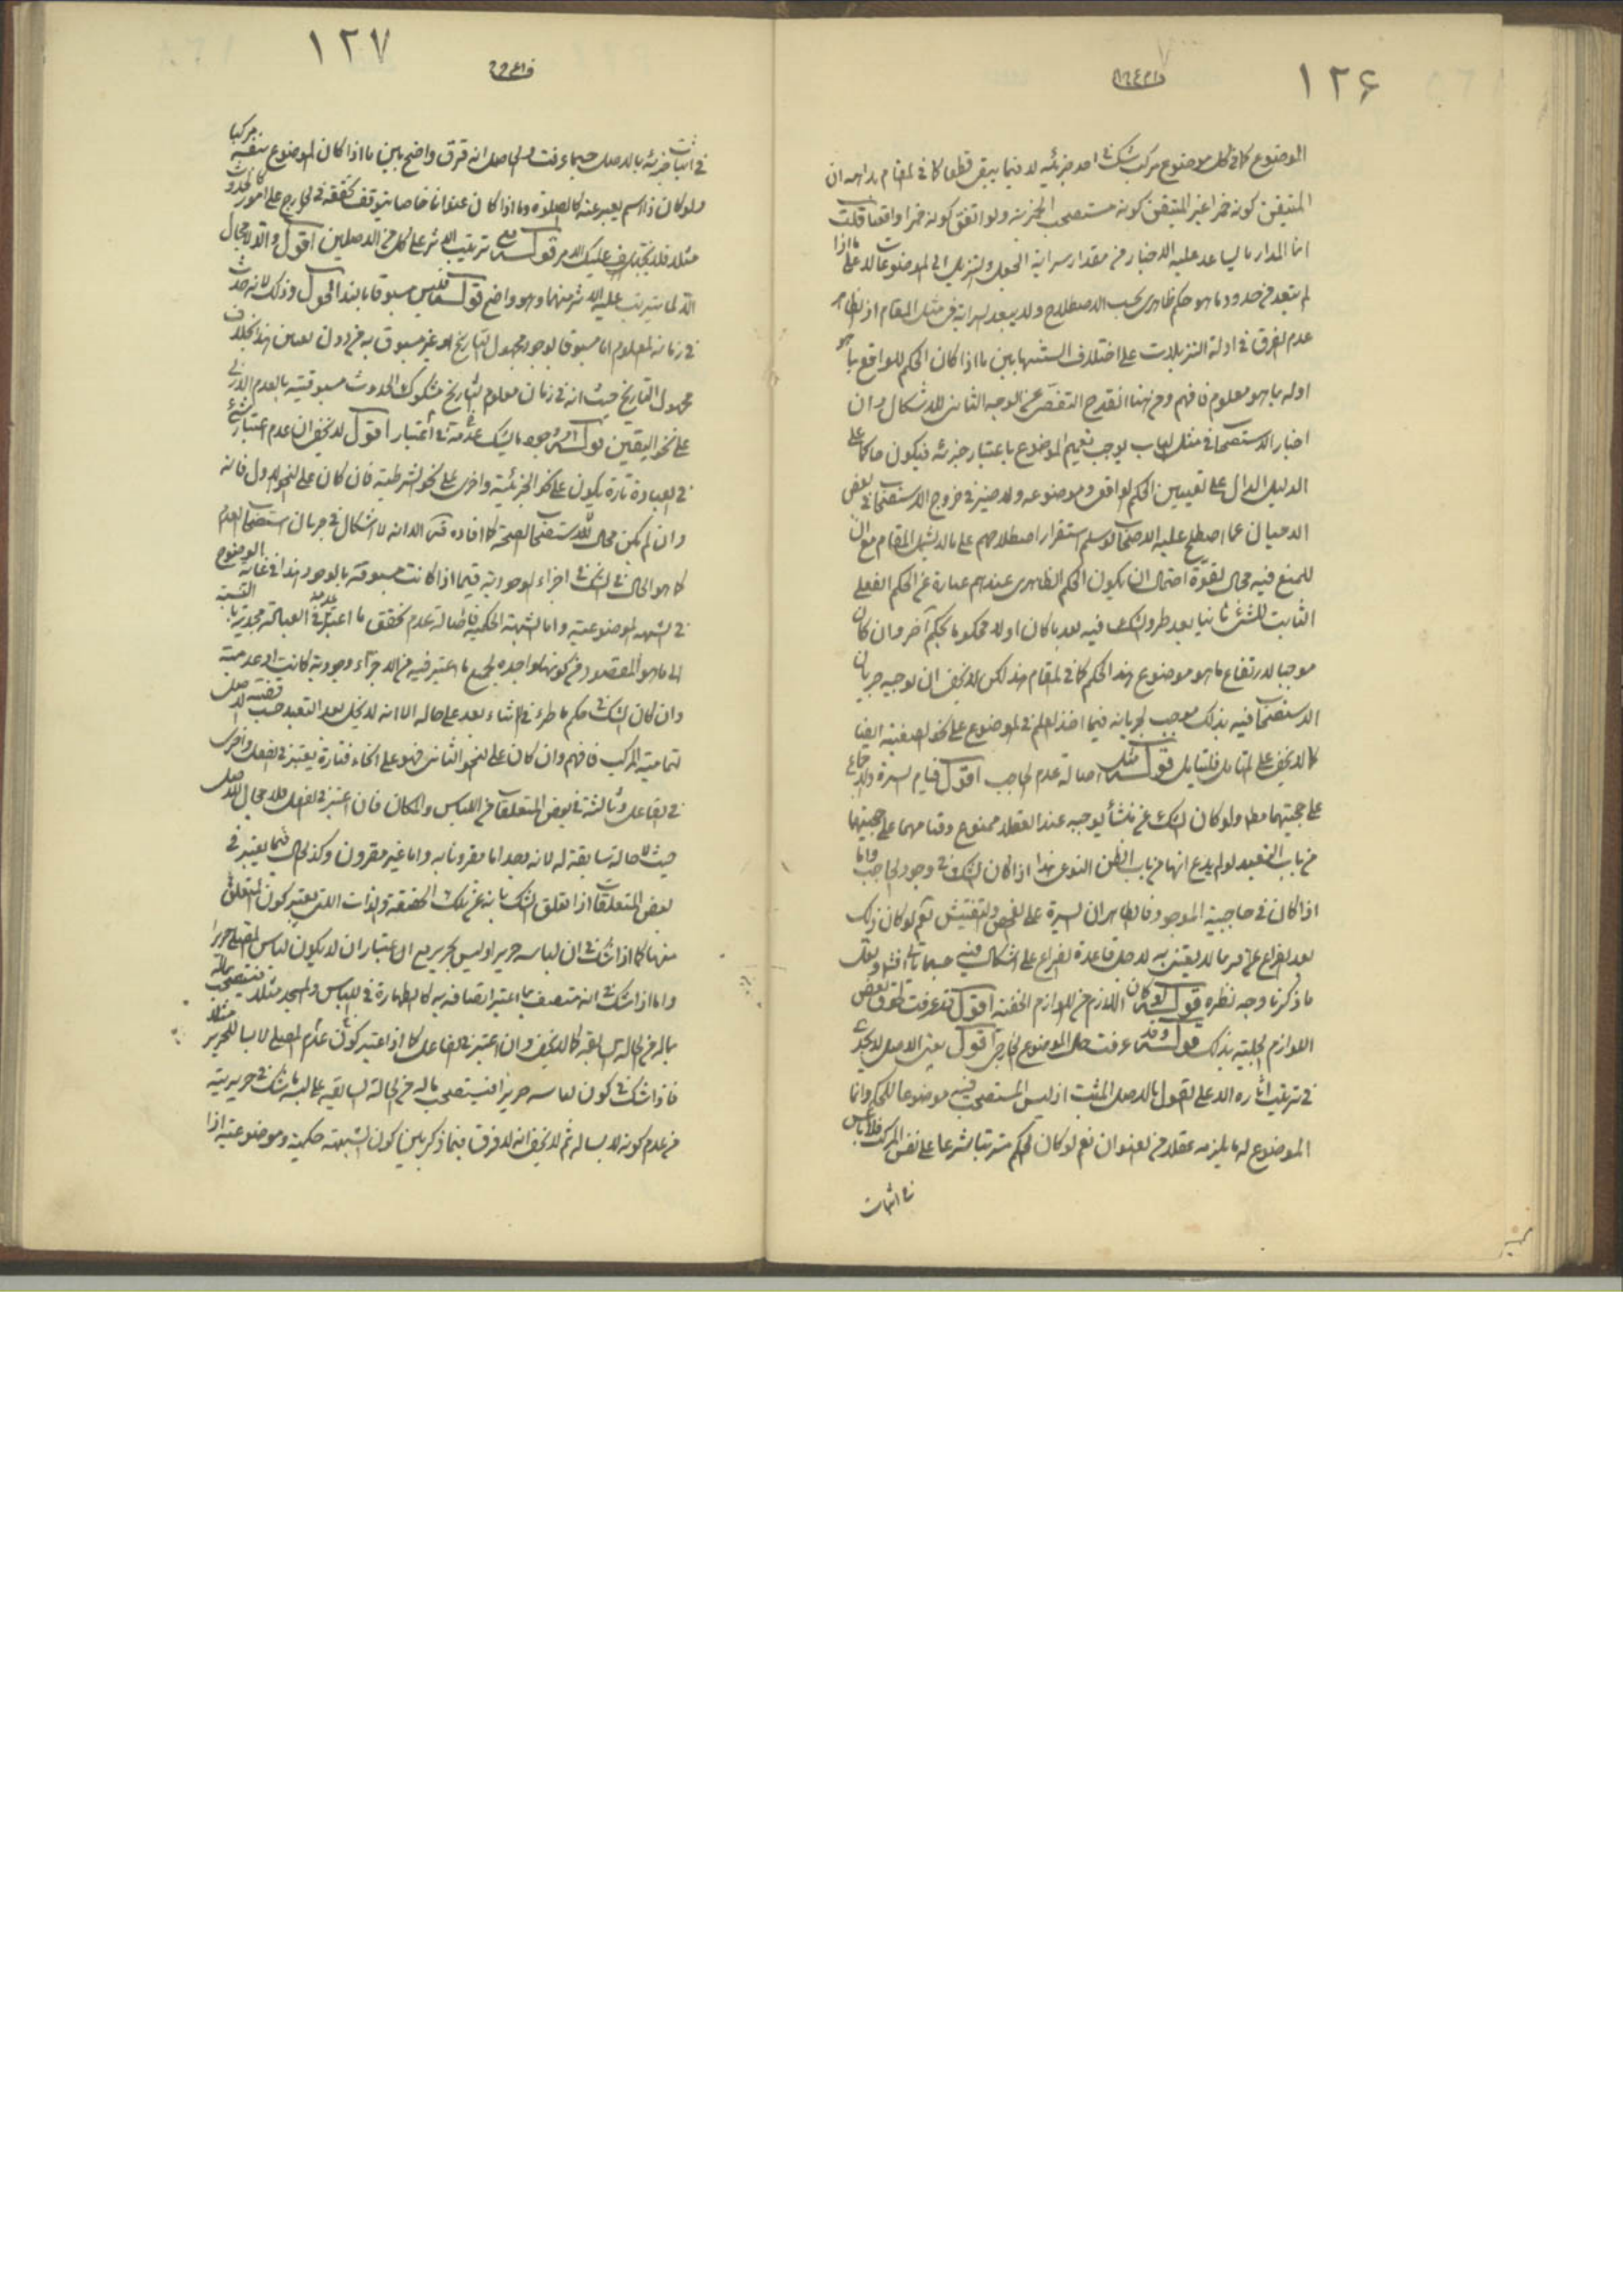 ١٢۶
الموضوع كما فى كل موضوع مركب شك فى احد جزئيه لا فيما يبقى قطعا كما فى المقام بداهه ان
المتيقن كونه خمرا غير المتيقن كونه مستصحب الخمرية ولو اتفق كونه خمرا واقعا قلت
انما المدار ما يساعد عليه الاخبار فى مقدار سراية الجعل والتنزيل الى الموضوعات لا على ما اذا
لم يتعد فى حدود ما هو حكم ظاهرى بحسب الاصطلاح ولا يبعد سرايته فى مثل المقام اذ الظاهر
عدم الفرق فى ادلة التنزيلات على اختلاف السنتها بين ما اذا كان الحكم للواقع بما هو
اوله بما هو معلوم فافهم ومن هنا انقدح التفصى عن الوجه الثانى للاشكال وان
اخبار الاستصحاب فى مثل الباب يوجب تعميم الموضوع باعتبار جزئه فيكون حاكما على
الدليل الدال على تعيين الحكم الواقعى وموضوعه ولا ضير فى خروج الاستصحاب فى بعض
الاحيان عما اصطلح عليه الاصحاب لو سلم استقرار اصطلاحهم على ما لا يشمل المقام مع ان
للمنع فيه مجال لقوة احتمال ان يكون الحكم الظاهرى عندهم عبارة عن الحكم الفعلى
الثابت للشئ ثانيا بعد طرو الشك فيه بعد ما كان اولا محكوما بحكم آخر وان كان
موجبا لارتفاع ما هو موضوع هذا الحكم كما فى المقام هذا لكن لا يخفى ان توجيه جريان
الاستصحاب فيه بذلك موجب لجريانه فيما اخذ العلم فى الموضوع على نحو الصفتية ايضا
كما لا يخفى على المتامل فليتامل قوله مثل اصالة عدم الحاجب اقول قيام السيرة والاجماع
على حجيتها مطلقا ولو كان الشك عن منشأ يوجبه عند العقلاء ممنوع وقيامهما على حجيتها
من باب التعبد لو لم يدع انها من باب الظن النوعى هذا اذا كان الشك فى وجود الحاجب واما
اذا كان فى حاجبية الموجود فالظاهر ان السيرة على الفحص والتفتيش نعم لو كان ذلك
بعد الفراغ عن لا يعتنى به لاصل قاعدة الفراغ على اشكال فيه حسبما ياتى انشاء الله ولعل
ما ذكرنا وجه نظره قوله لو كان اللازم من اللوازم الخفية اقول قد عرفت تطرق بعض
اللوازم الجلية بذلك قوله وقد عرفت حال الموضوع الخارجى اقول يعنى الاصل لا يجدى
فى ترتيب اثاره الا على القول بالاصل المثبت اذ ليس المستصحب فيه موضوعا للحكم وانما
الموضوع له ما يلزمه عقلا من العنوان نعم لو كان الحكم مترتبا شرعا على نفس المركب فلا باس
فى اثبات
١٢٧
فى اثبات جزئه بالاصل حسبما عرفت والحاصل انه فرق واضح بين ما اذا كان الموضوع بنفسه مركبا
ولو كان ذا اسم يعبر عنه كالصلوة وما اذا كان عنوانا خاصا يتوقف تحققه فى الخارج على امور كالحدوث
مثلا فلا يختلف عليك الامر قوله ترتيب الاثر على كل من الاصلين اقول والا لا مجال
الا لما يترتب عليه الاثر منهما وهو واضح قوله فليس مسبوقا بابتداء الحول وذلك لانه حدث
فى زمانه المعلوم اما مسبوقا بوجود مجهول التاريخ او غير مسبوق به من دون تعين هذا بخلاف
مجهول التاريخ حيث انه فى زمان معلوم التاريخ مشكوك الحدوث مسبوقيته بالعدم الازلى
على نحو اليقين قوله ما يشك فى اعتبار اقول لا يخفى ان عدم اعتبار شئ
فى العبادة تارة يكون على نحو الجزئية واخرى على نحو الشرطية فان كان على النحو الاول فانه
وان لم يكن مجال للاستصحاب الصحة كما افاده قده الا انه لا اشكال فى جريان استصحاب العدم
كما هو الحال فى الشك فى اجزاء الوجودية فيما اذا كانت مسبوقة بالوجود هذا فى غاية الوضوح
فى الشبهة الموضوعية واما الشبهة الحكمية فاصالة عدم تحقق ما اعتبر عدمه فى العبادة مجدية بالنسبة
الى ما هو المقصود من كونها واجدة لجميع ما اعتبر فيه من الاجزاء وجودية كانت او عدمية
وان كان الشك فى حكم ما طرء فى الاثناء بعد على حاله الا انه لا يخل بعد التعبد حسب قضية الاصل
بتمامية المركب فافهم وان كان على النحو الثانى فهو على انحاء فتارة يعتبر فى الفعل واخرى
فى الفاعل وثالثة فى بعض المتعلقات من اللباس والمكان فان اعتبر فى الفعل فلا مجال للاصل
حيث لا حالة سابقة له لانه بعد اما مقرونا به واما غير مقرون وكذلك الحال فيما يعتبر فى
بعض المتعلقات اذا تعلق الشك بانه عن تلك الحقيقة والذات التى يعتبر كون المتعلق
منها كما اذا شك فى ان لباسه حرير او ليس بحرير مع اعتبار ان لا يكون لباس المصلى حريرا
واما اذا شك فى انه متصف بما اعتبر اتصافه به كالطهارة فى اللباس والمسجد مثلا فيستصحب ماله
ماله من الحالة السابقة كما لا يخفى وان اعتبر فى الفاعل كما اذا اعتبر كون عدم المصلى لابسا للحرير مثلا
فاذا شك فى كون لباسه حريرا فيستصحب ماله من الحالة السابقة على لبسه ما شك فى حريريته
من عدم كونه لابسا له ثم لا يخفى انه لا فرق فيما ذكر بين كون الشبهة حكمية وموضوعية اذا